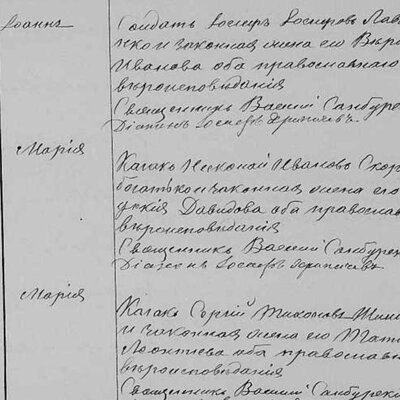 Іоаннъ
Солдатъ Іосифъ Іосифовъ
и законная жена его
Иванова оба православнаго
вѣроисповѣданія
Священникъ Василій Самбурск
Діаконъ Іосифъ
Марія
Казакъ Николай Ивановъ Скор
богатько и законная жена его
Давидова оба правосла
вѣроисповѣданія
Священникъ Василій Самбурск
Діаконъ Іосифъ
Марія
Казакъ Сергій Тихоновъ
и законная жена его Тать
Леонтіева оба православн
вѣроисповѣданія
Священникъ Василій Самбурски